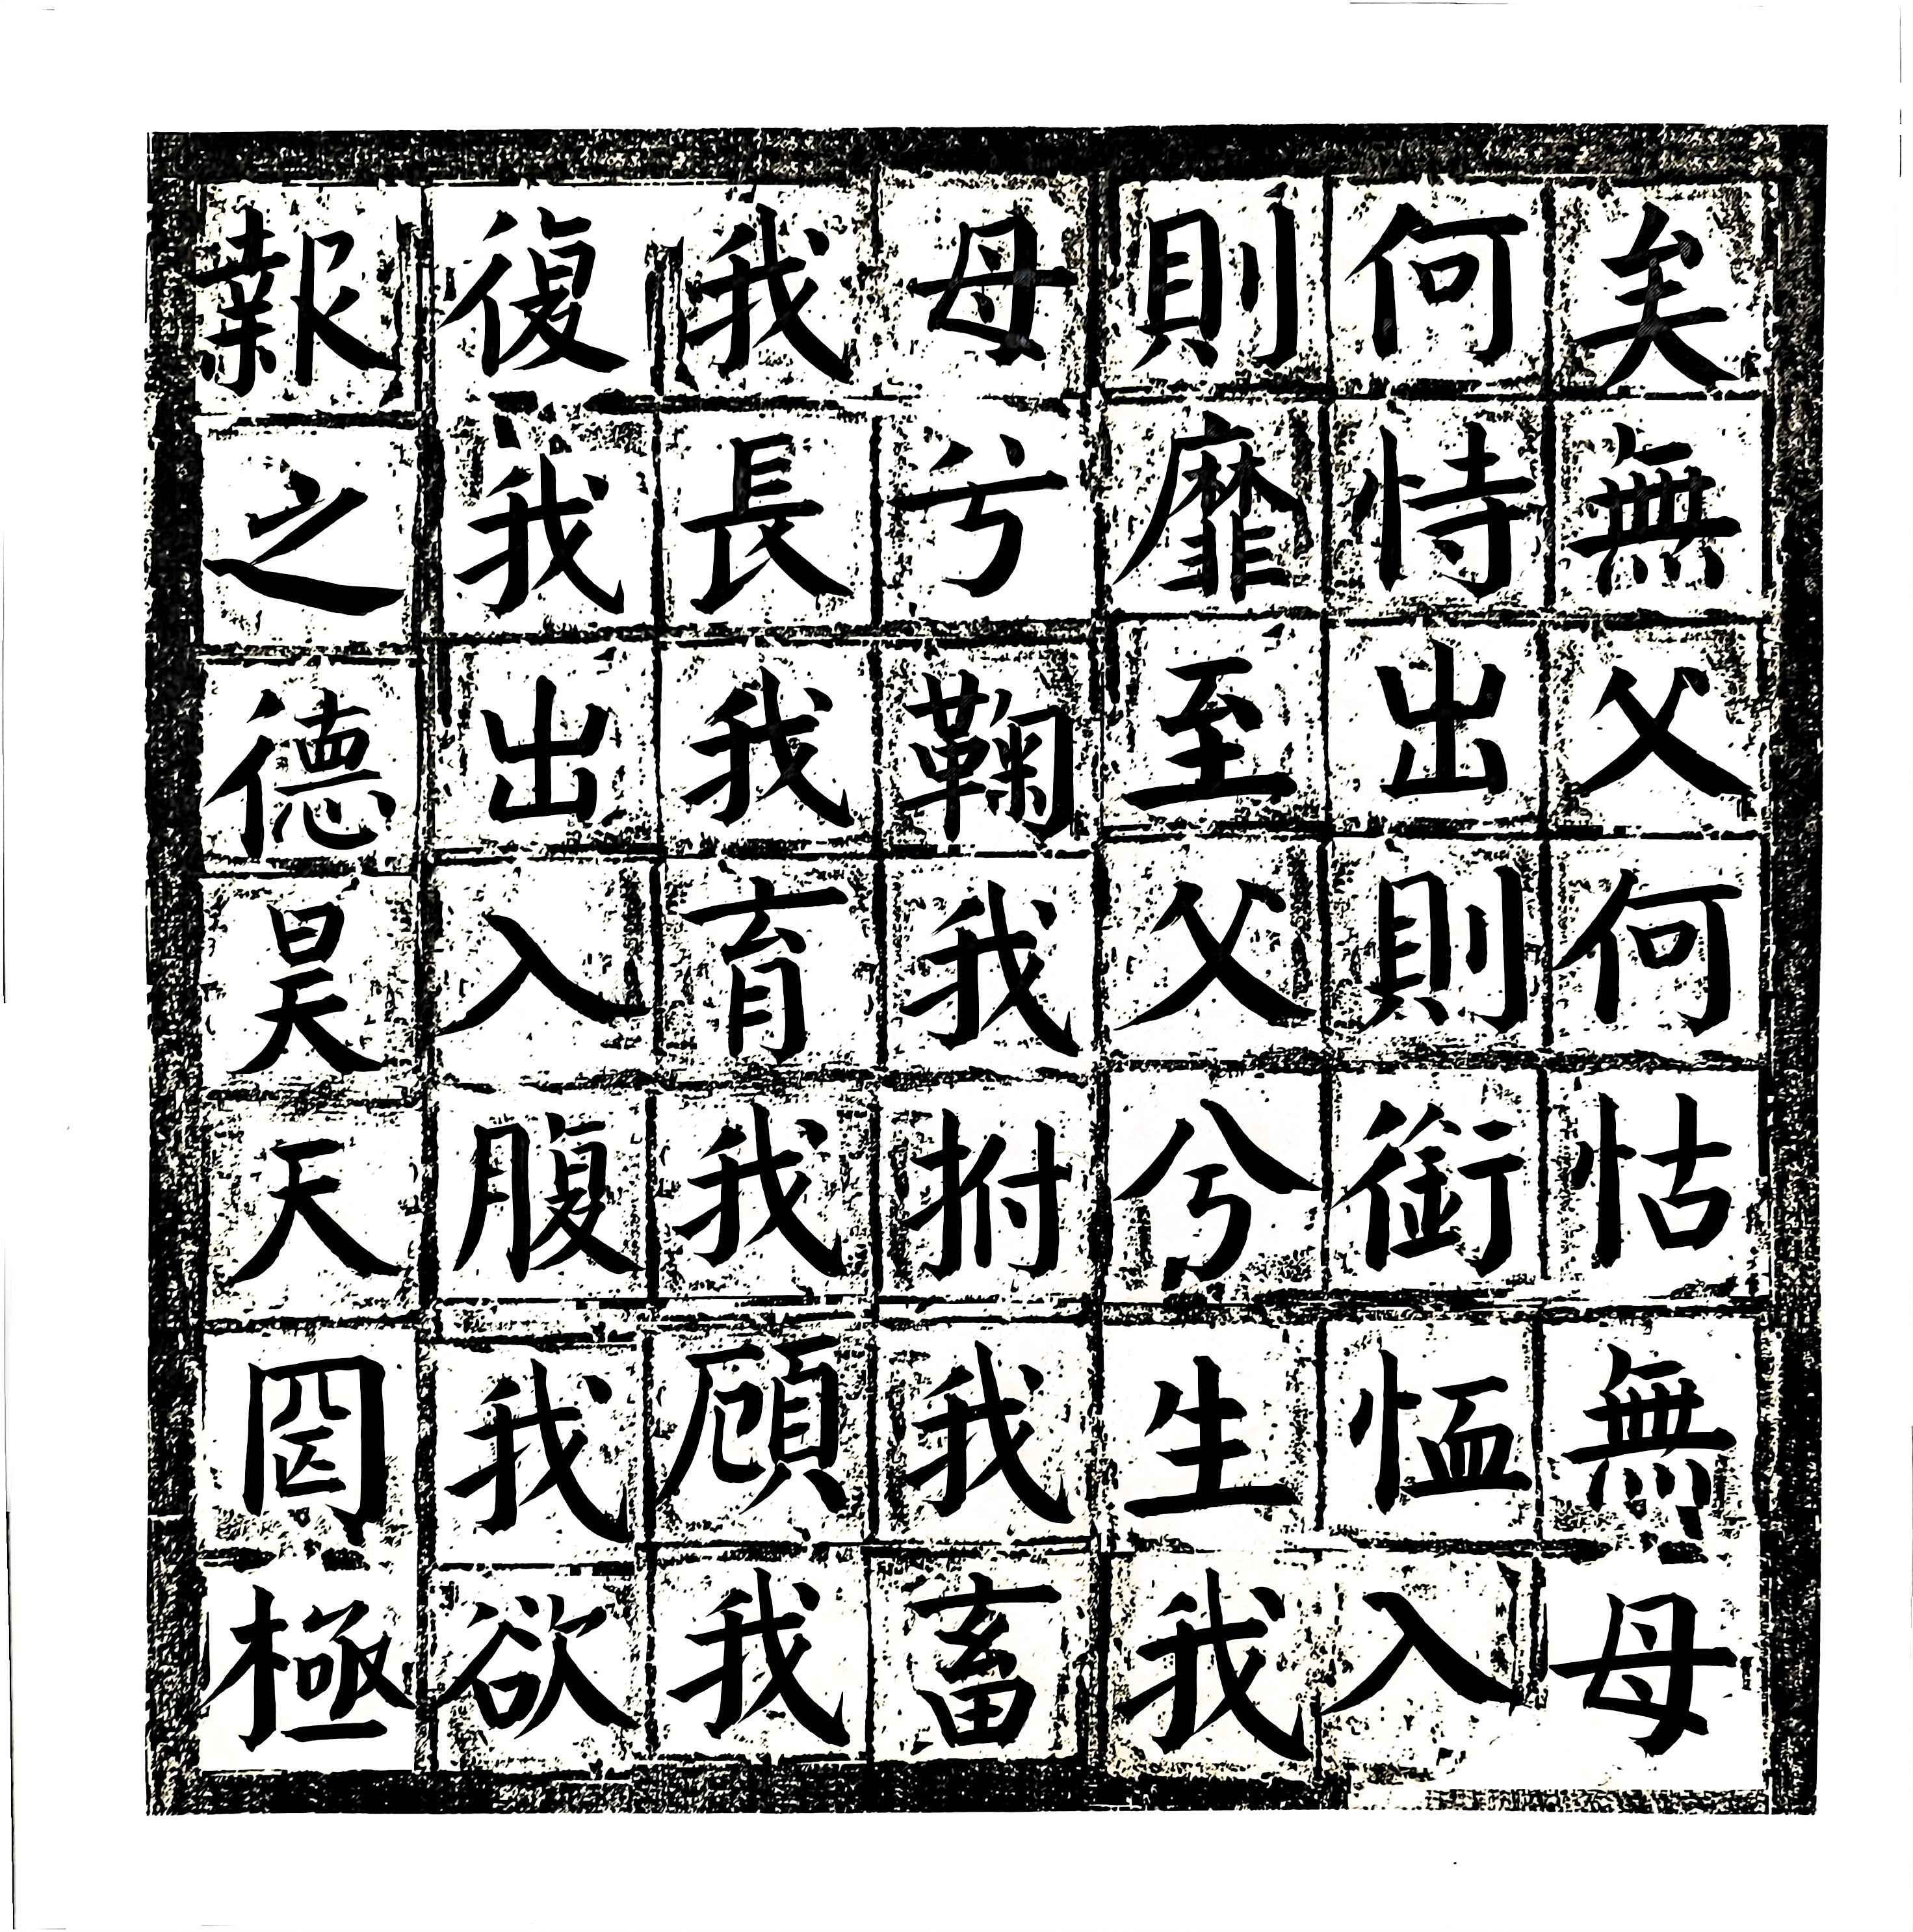 矣無父何怙無母
何恃出則銜恤入
則靡至父兮生我
母兮鞠我拊我畜
我長我育我顧我
復我出入腹我欲
報之德昊天罔極